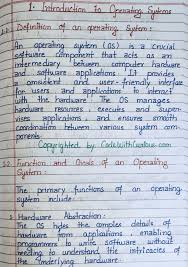 1. Introduction to Operating Systems
1.1 Definition of an operating system:
An operating system (OS) is a crucial
software component that acts as an
intermediary between computer hardware
and software applications. It provides
a consistent and user-friendly interface
for users and applications to interact
with the hardware. The OS manages
hardware resources, executes and super-
vises applications, and ensures smooth
coordination between various system com-
ponents.
Copyrighted by CodeWithCurious.com
1.2 Function and Goals of an Operating
System:
The primary functions of an operating
system include:
1. Hardware Abstraction:
The OS hides the complex details of
hardware from applications, enabling
programmers to write software without
needing to understand the intricacies of
the underlying hardware.